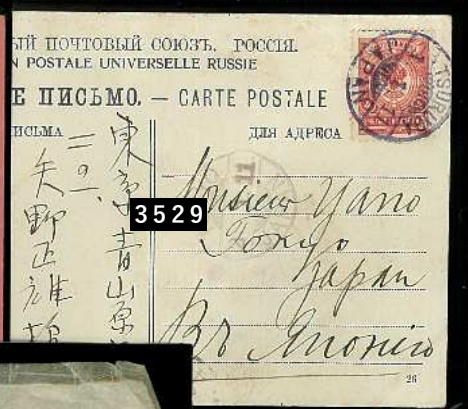 ЫЙ ПОЧТОВЫЙ СОЮЗЪ. РОССІЯ.
N POSTALE UNIVERSELLE RUSSIE
Е ПИСЬМО. — CARTE POSTALE
ИСЬМА
ДЛЯ АДРЕСА
TSURUGA
JAPAN
東京青山原
二九
矢野正雄
3529
Monsieur Yano
Tokyo
Japan
Въ Японію
26